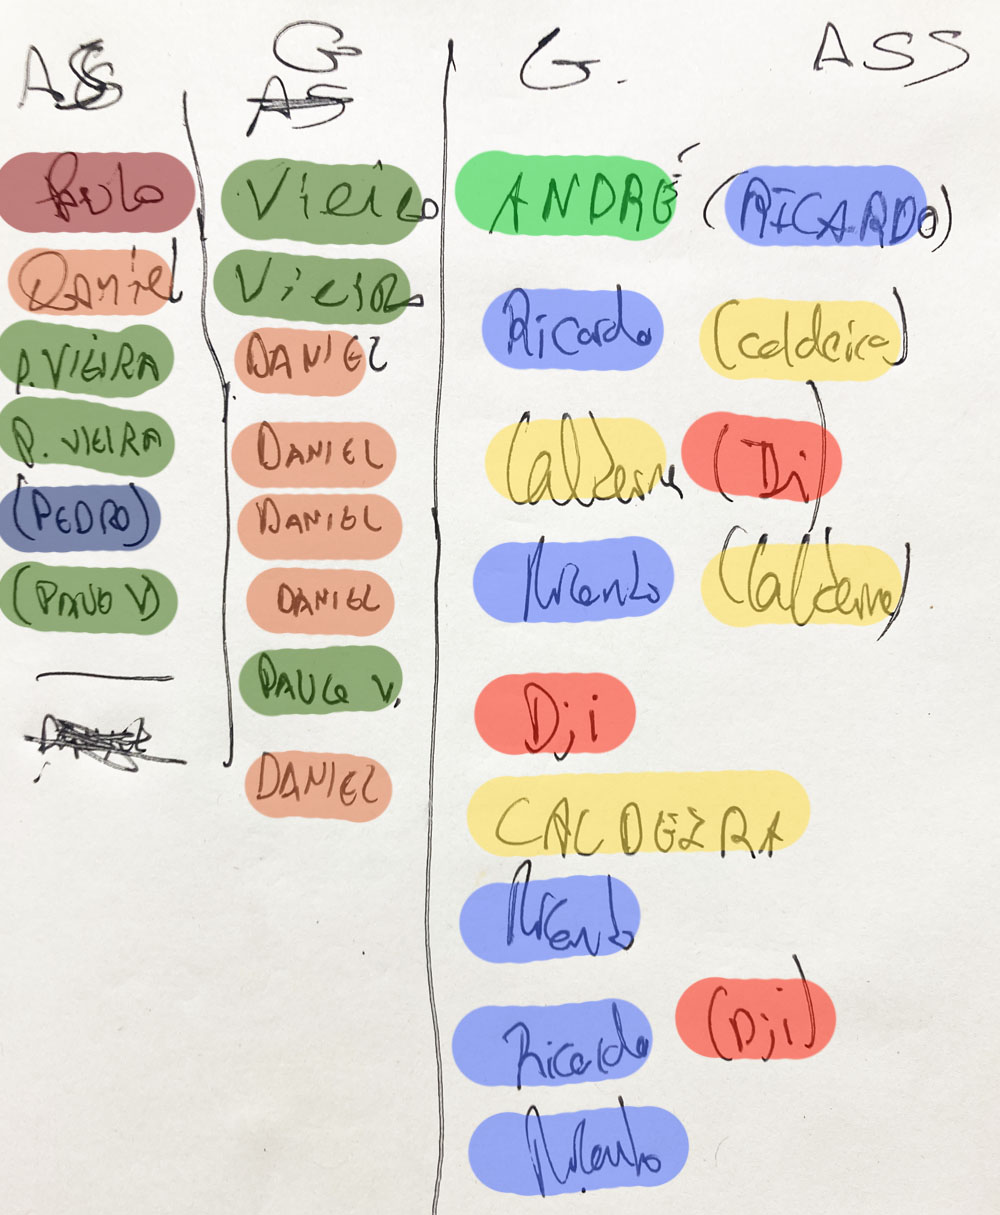 ASS
Paulo
Daniel
P. VIEIRA
P. VIEIRA
(PEDRO)
(PAULO V)
G
AS
Vieira
Vieira
DANIEL
DANIEL
DANIEL
DANIEL
PAULO V.
DANIEL
G.
ANDRÉ
Ricardo
Caldeira
Ricardo
Dji
CALDEIRA
Ricardo
Ricardo
Ricardo
ASS
(RICARDO)
(Caldeira)
(Dji)
(Caldeira)
(Dji)